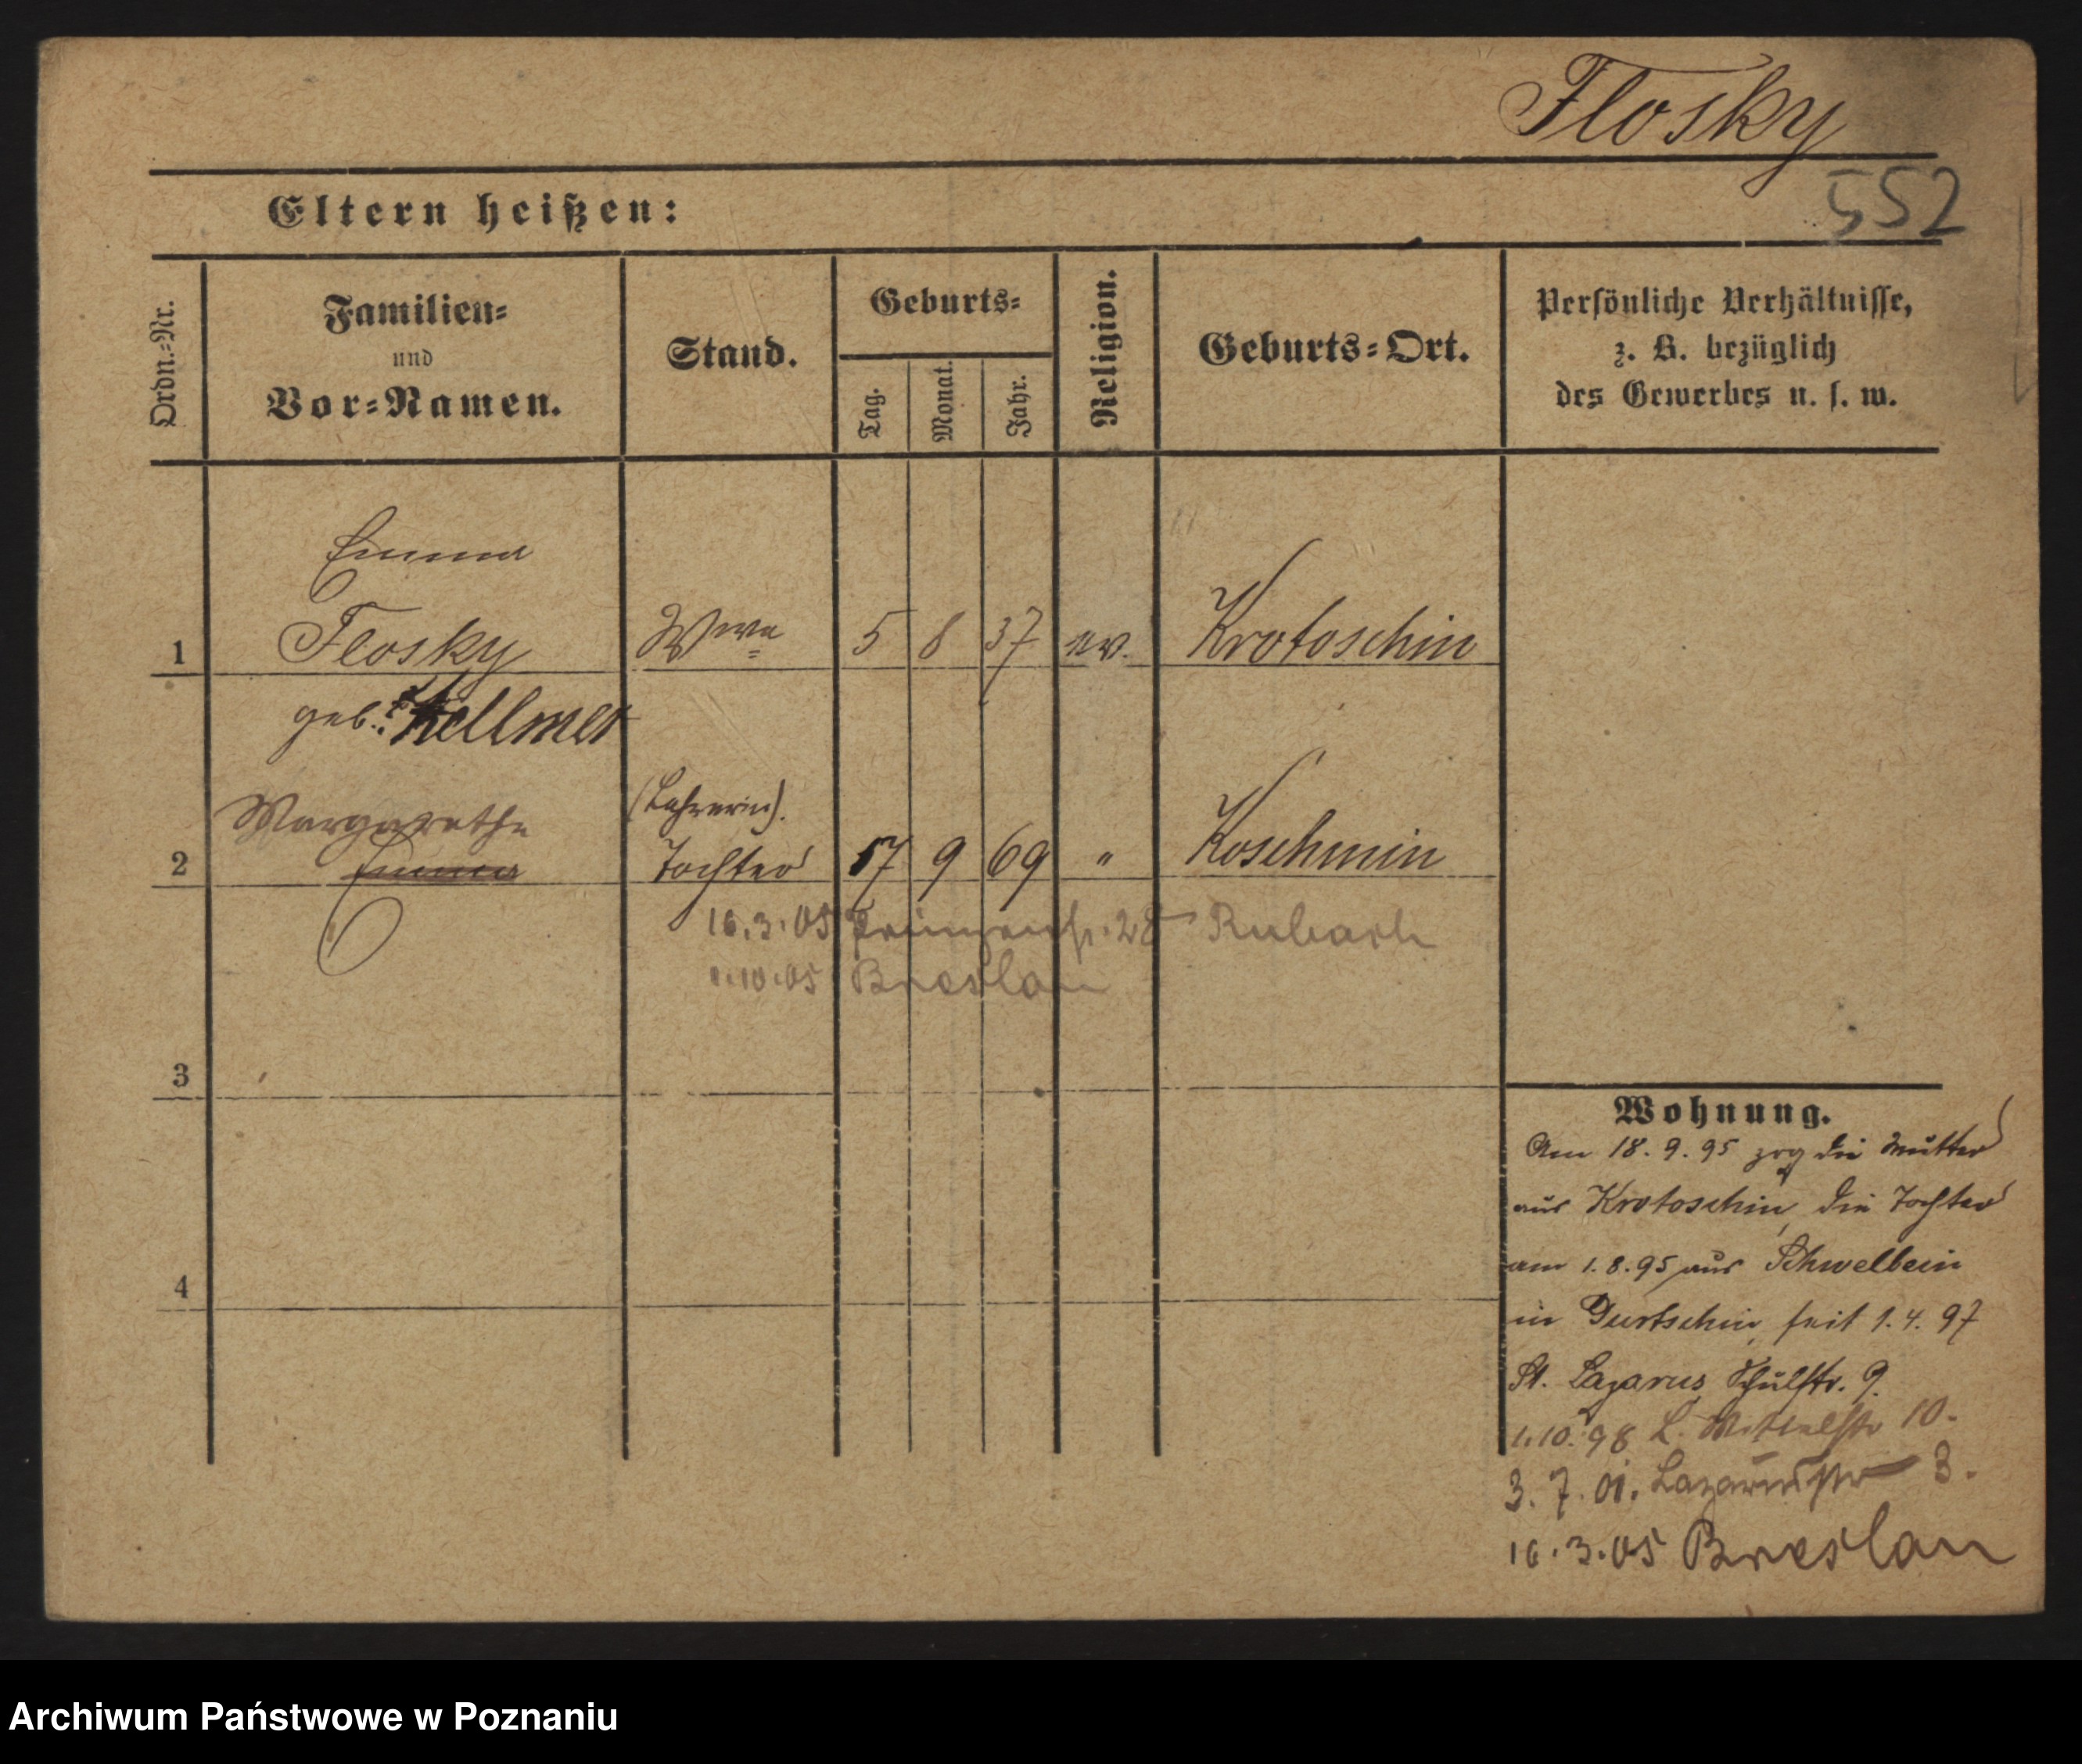 Flosky
552
Eltern heißen:
Ordn.-Nr.
Familien-
und
Vor-Namen.
Stand.
Geburts-
Tag.
Monat.
Jahr.
Religion.
Geburts-Ort.
Persönliche Verhältnisse,
z. B. bezüglich
des Gewerbes u. s. w.
Emma
1 Flosky Wwe 5 8 37 ev. Krotoschin
geb. Kellmer
Margarethe (Lehrerin).
2 Emma Tochter 17 9 69 " Koschmin
16.3.05 Prinzenstr. 28 Rubach
1.10.05 Breslau
3
4
Wohnung.
Am 18.9.95 zog die Mutter
aus Krotoschin, die Tochter
am 1.8.95 aus Schwelbein
in Gurtschin, seit 1.4.97
St. Lazarus Schulstr. 9.
1.10.98 L. 10.
3.7.01. Lazarusstr 3.
16.3.05 Breslau
Archiwum Państwowe w Poznaniu